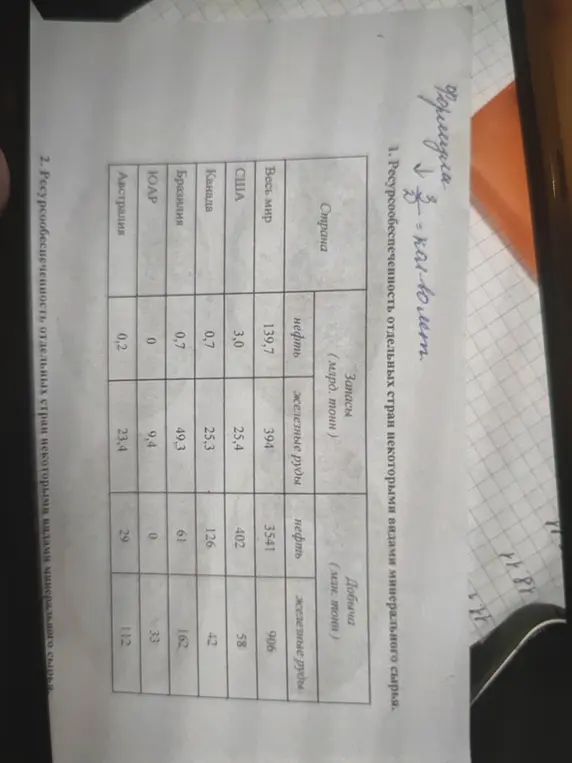 Формула
↓ З/Д = кол-во лет.
1. Ресурсообеспеченность отдельных стран некоторыми видами минерального сырья.
Страна Запасы (млрд. тонн) Добыча (млн. тонн)
нефть железные руды нефть железные руды
Весь мир 139,7 394 3541 906
США 3,0 25,4 402 58
Канада 0,7 25,3 126 42
Бразилия 0,7 49,3 61 162
ЮАР 0 9,4 0 33
Австралия 0,2 23,4 29 112
2. Ресурсообеспеченность отдельных стран некоторыми видами минерального сырья.